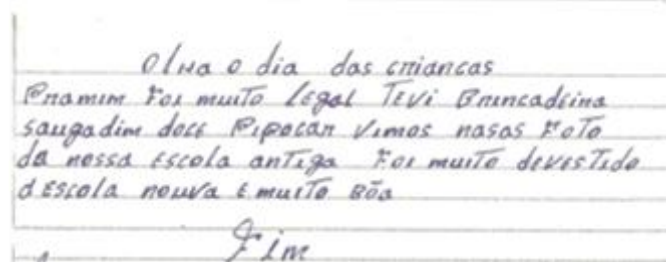 Olha o dia das criancas
Pramim Foi muito legal Tevi Brincadeira
saugadim doce Pipocar Vimos nasas Foto
da nossa escola antiga Foi muito devestido
d escola nouva e muito Bõa
Fim